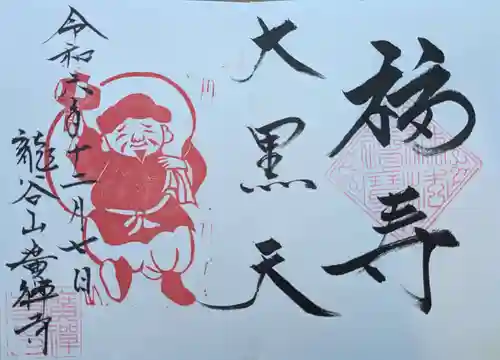 福寿
大黒天
令和六年十二月七日
龍谷山
禅寺